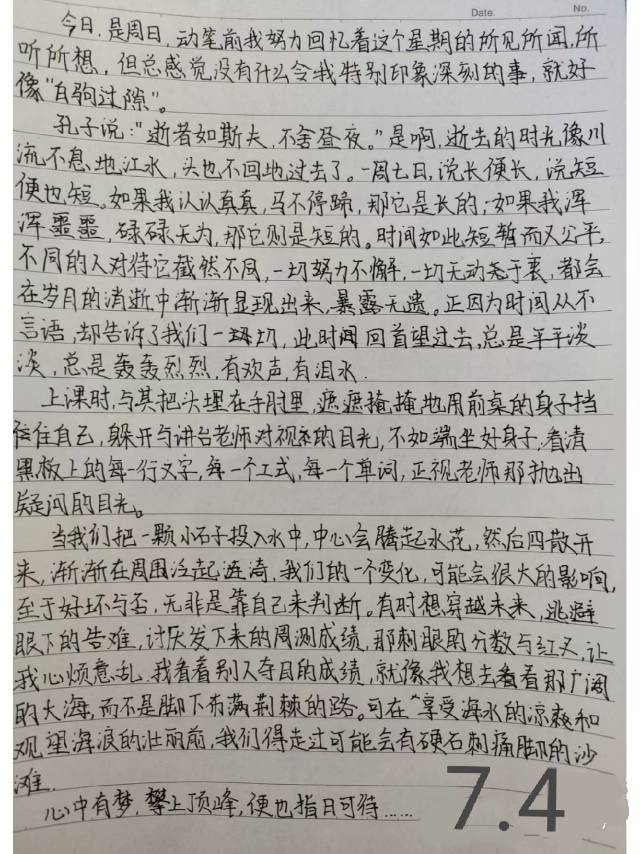 Date.
No.
今日,是周日,动笔前我努力回忆着这个星期的所见所闻,所
听所想,但总感觉没有什么令我特别印象深刻的事,就好
像“白驹过隙”。
孔子说:“逝者如斯夫,不舍昼夜。”是啊,逝去的时光像川
流不息地江水,头也不回地过去了。一周七日,说长便长,说短
便也短。如果我认认真真,马不停蹄,那它是长的;如果我浑
浑噩噩,碌碌无为,那它则是短的。时间如此短暂而又公平,
不同的人对待它截然不同,一切努力不懈,一切无动于衷,都会
在岁月的消逝中渐渐显现出来,暴露无遗。正因为时间从不
言语,却告诉了我们一切,此时间回首望过去,总是平平淡
淡,总是轰轰烈烈,有欢声,有泪水.
上课时,与其把头埋在手肘里,遮遮掩掩地用前桌的身子挡
住自己,躲开与讲台老师对视的目光,不如端坐好身子,看清
黑板上的每一行文字,每一个工式,每一个单词,正视老师那抛出
疑问的目光。
当我们把一颗小石子投入水中,中心会腾起水花,然后四散开
来,渐渐在周围泛起涟漪,我们的一个变化,可能会很大的影响,
至于好坏与否,无非是靠自己来判断。有时想穿越未来,逃避
眼下的苦难,讨厌发下来的周测成绩,那刺眼的分数与红叉,让
我心烦意乱.我看着别人夺目的成绩,就像我想去看看那广阔
的大海,而不是脚下布满荆棘的路。可在享受海水的凉爽和
观望海浪的壮丽前,我们得走过可能会有硬石刺痛脚的沙
滩.
心中有梦,攀上顶峰,便也指日可待……
7.4